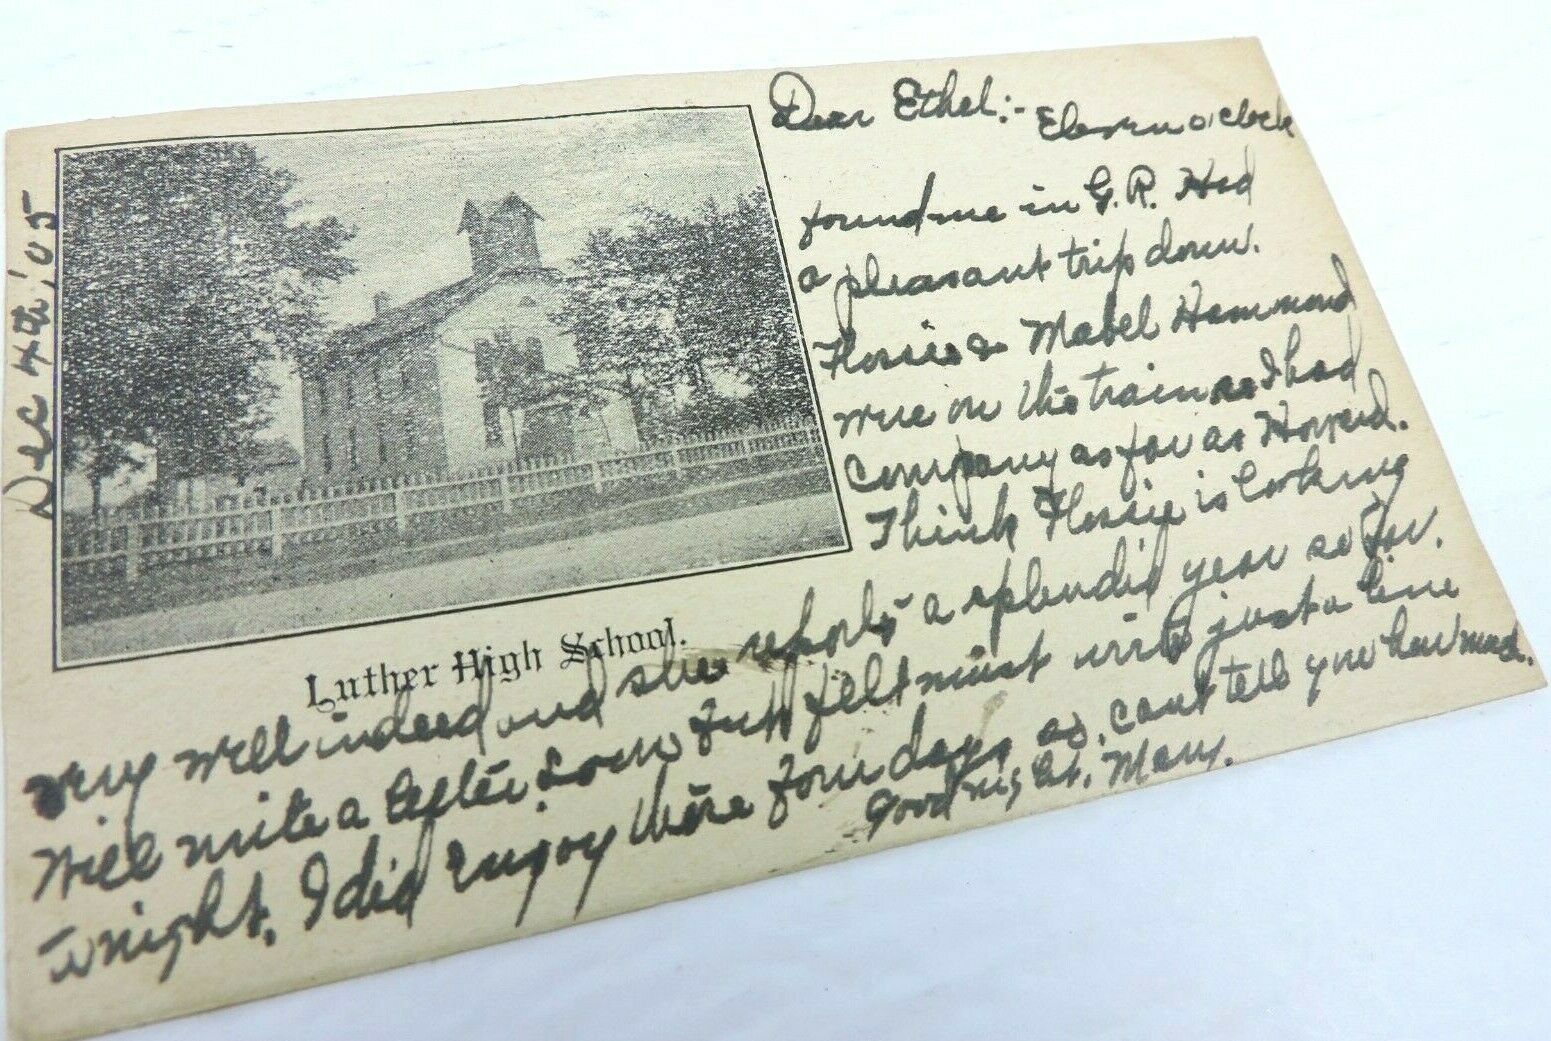 Dec 4th, '05
Dear Ethel:- Eleven o'clock
found me in G. R. Had
a pleasant trip down.
Flossie & Mabel Hammond
were on the train so I had
company as far as Howard.
Think Flossie is looking
very well indeed and she reports a splendid year so far.
Will write a letter soon but felt must write just a line
tonight. I did enjoy those four days so, can't tell you how much.
Good night, Mary.
Luther High School.